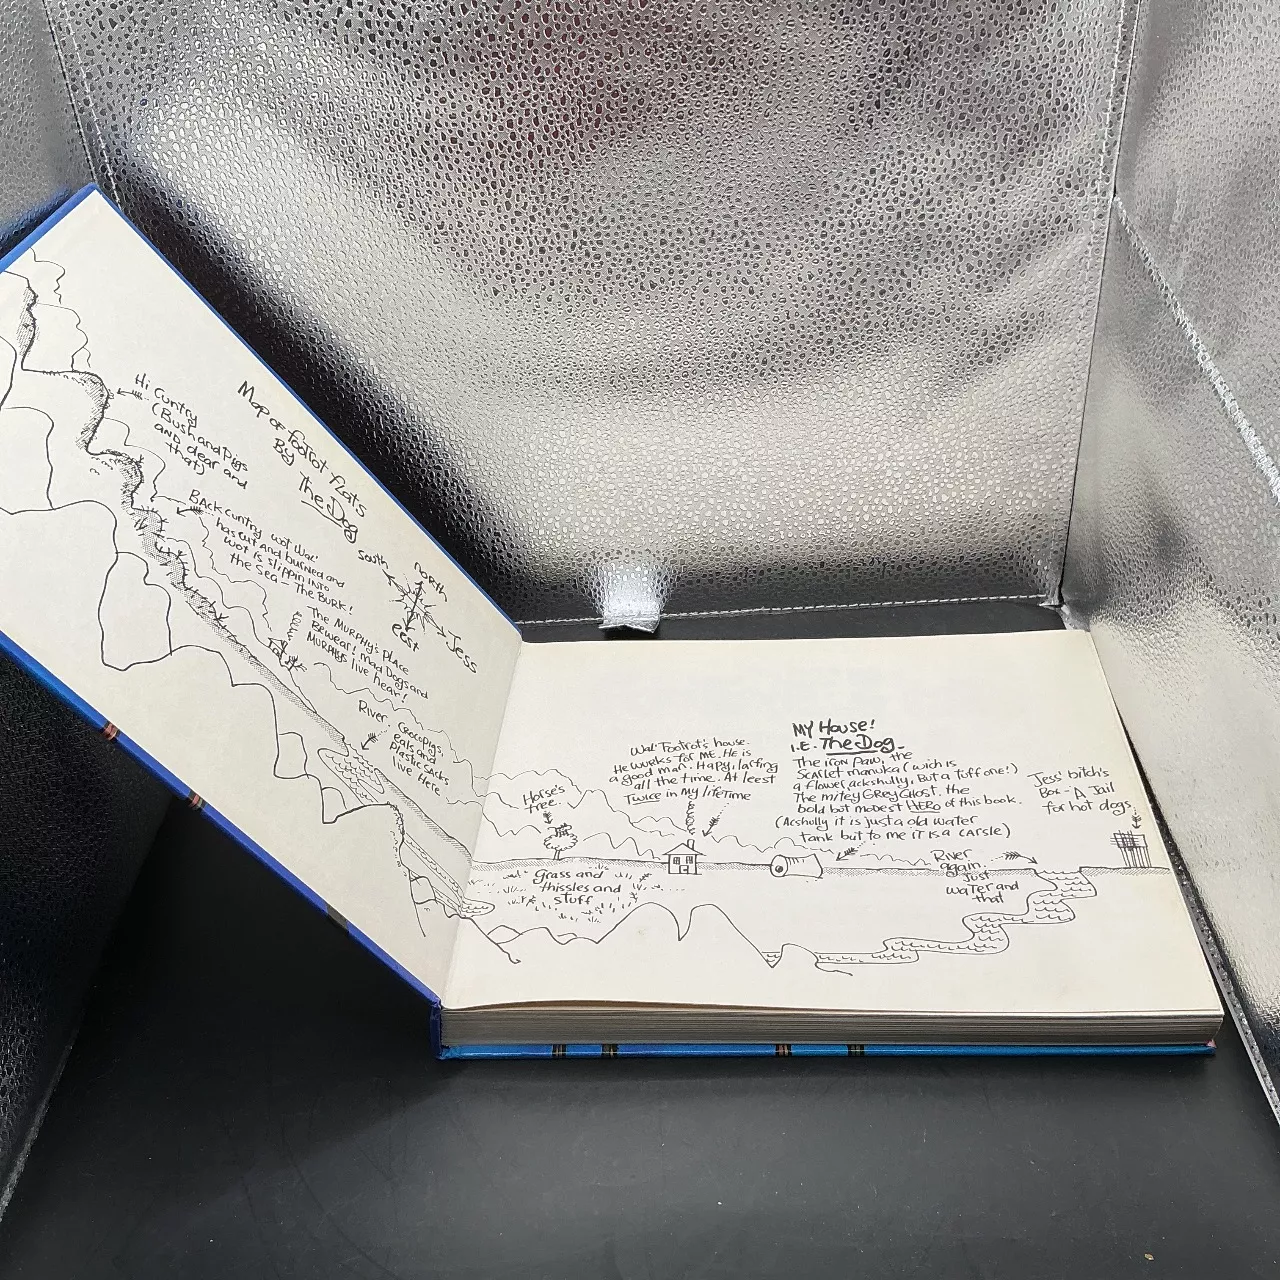 Map of Footrot Flats
By
The Dog
Hi Cuntry
(Bush and Pigs
AND dear and
that)
BACK cuntry wot Wal'
has cut and burned and
wot is slippin INTO
the Sea - The BURK!
South
North
eest
Jess
The MURPHY'S PLACE
Bewear! mad Dogs and
MURPHYS live hear!
River. Crocopigs,
Eals and
Plastic sacks
live Here
Horse's
tree.
Wal' Footrot's house.
He wurks for ME. He is
a good man. Happy, larfing
all the time. At leest
Twice in My lifeTime
Grass and
thissles and
stuff
MY House!
I.E. The Dog-
The iron Paw, the
Scarlet manuka (wich is
a flower ackshully, But a tuff one!)
The mitey Grey Ghost. the
bold but modest HERO of this book.
(Acshully it is just a old water
tank but to me it is a carsle)
River
again.
Just
waTer and
that
Jess' bitch's
Box - A Jail
for hot dogs.